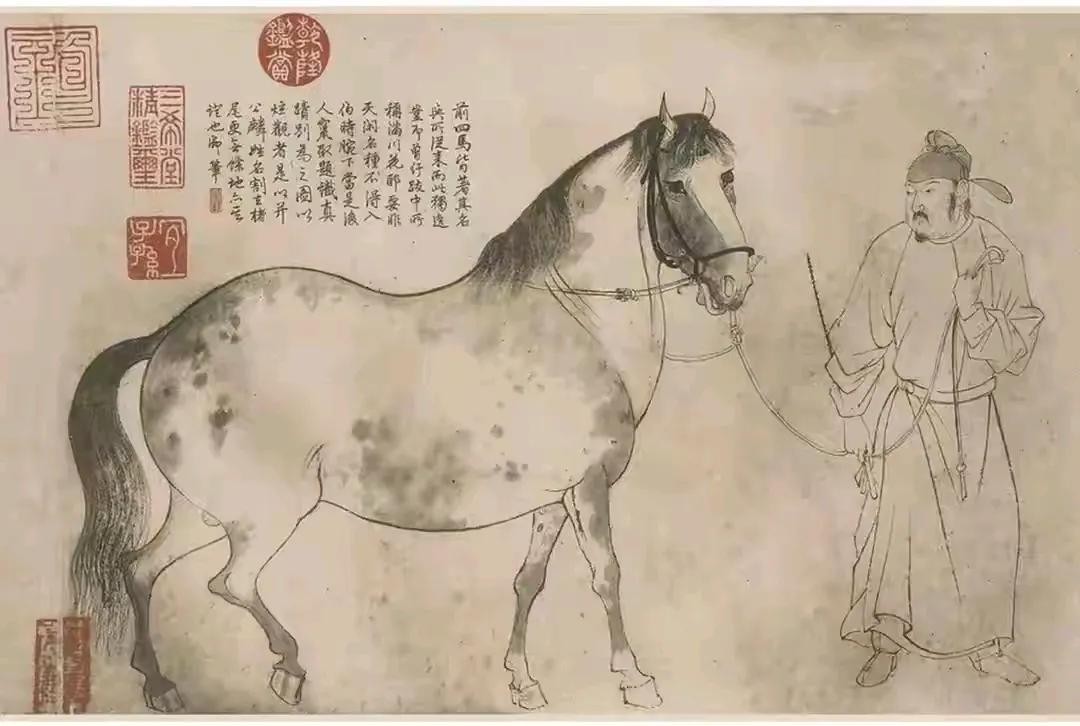 乾隆鑑賞
三希堂精鑑璽
宜子孫
前四馬皆著其名
與所從來而此獨逸
豈即曾紆跋中所
稱滿川花耶要非
天閑名種不得入
伯時腕下當是後
人竄取題識真
蹟別為之圖以
炫觀者是以并
公麟姓名割去楮
尾更無餘地亦可
證也御筆